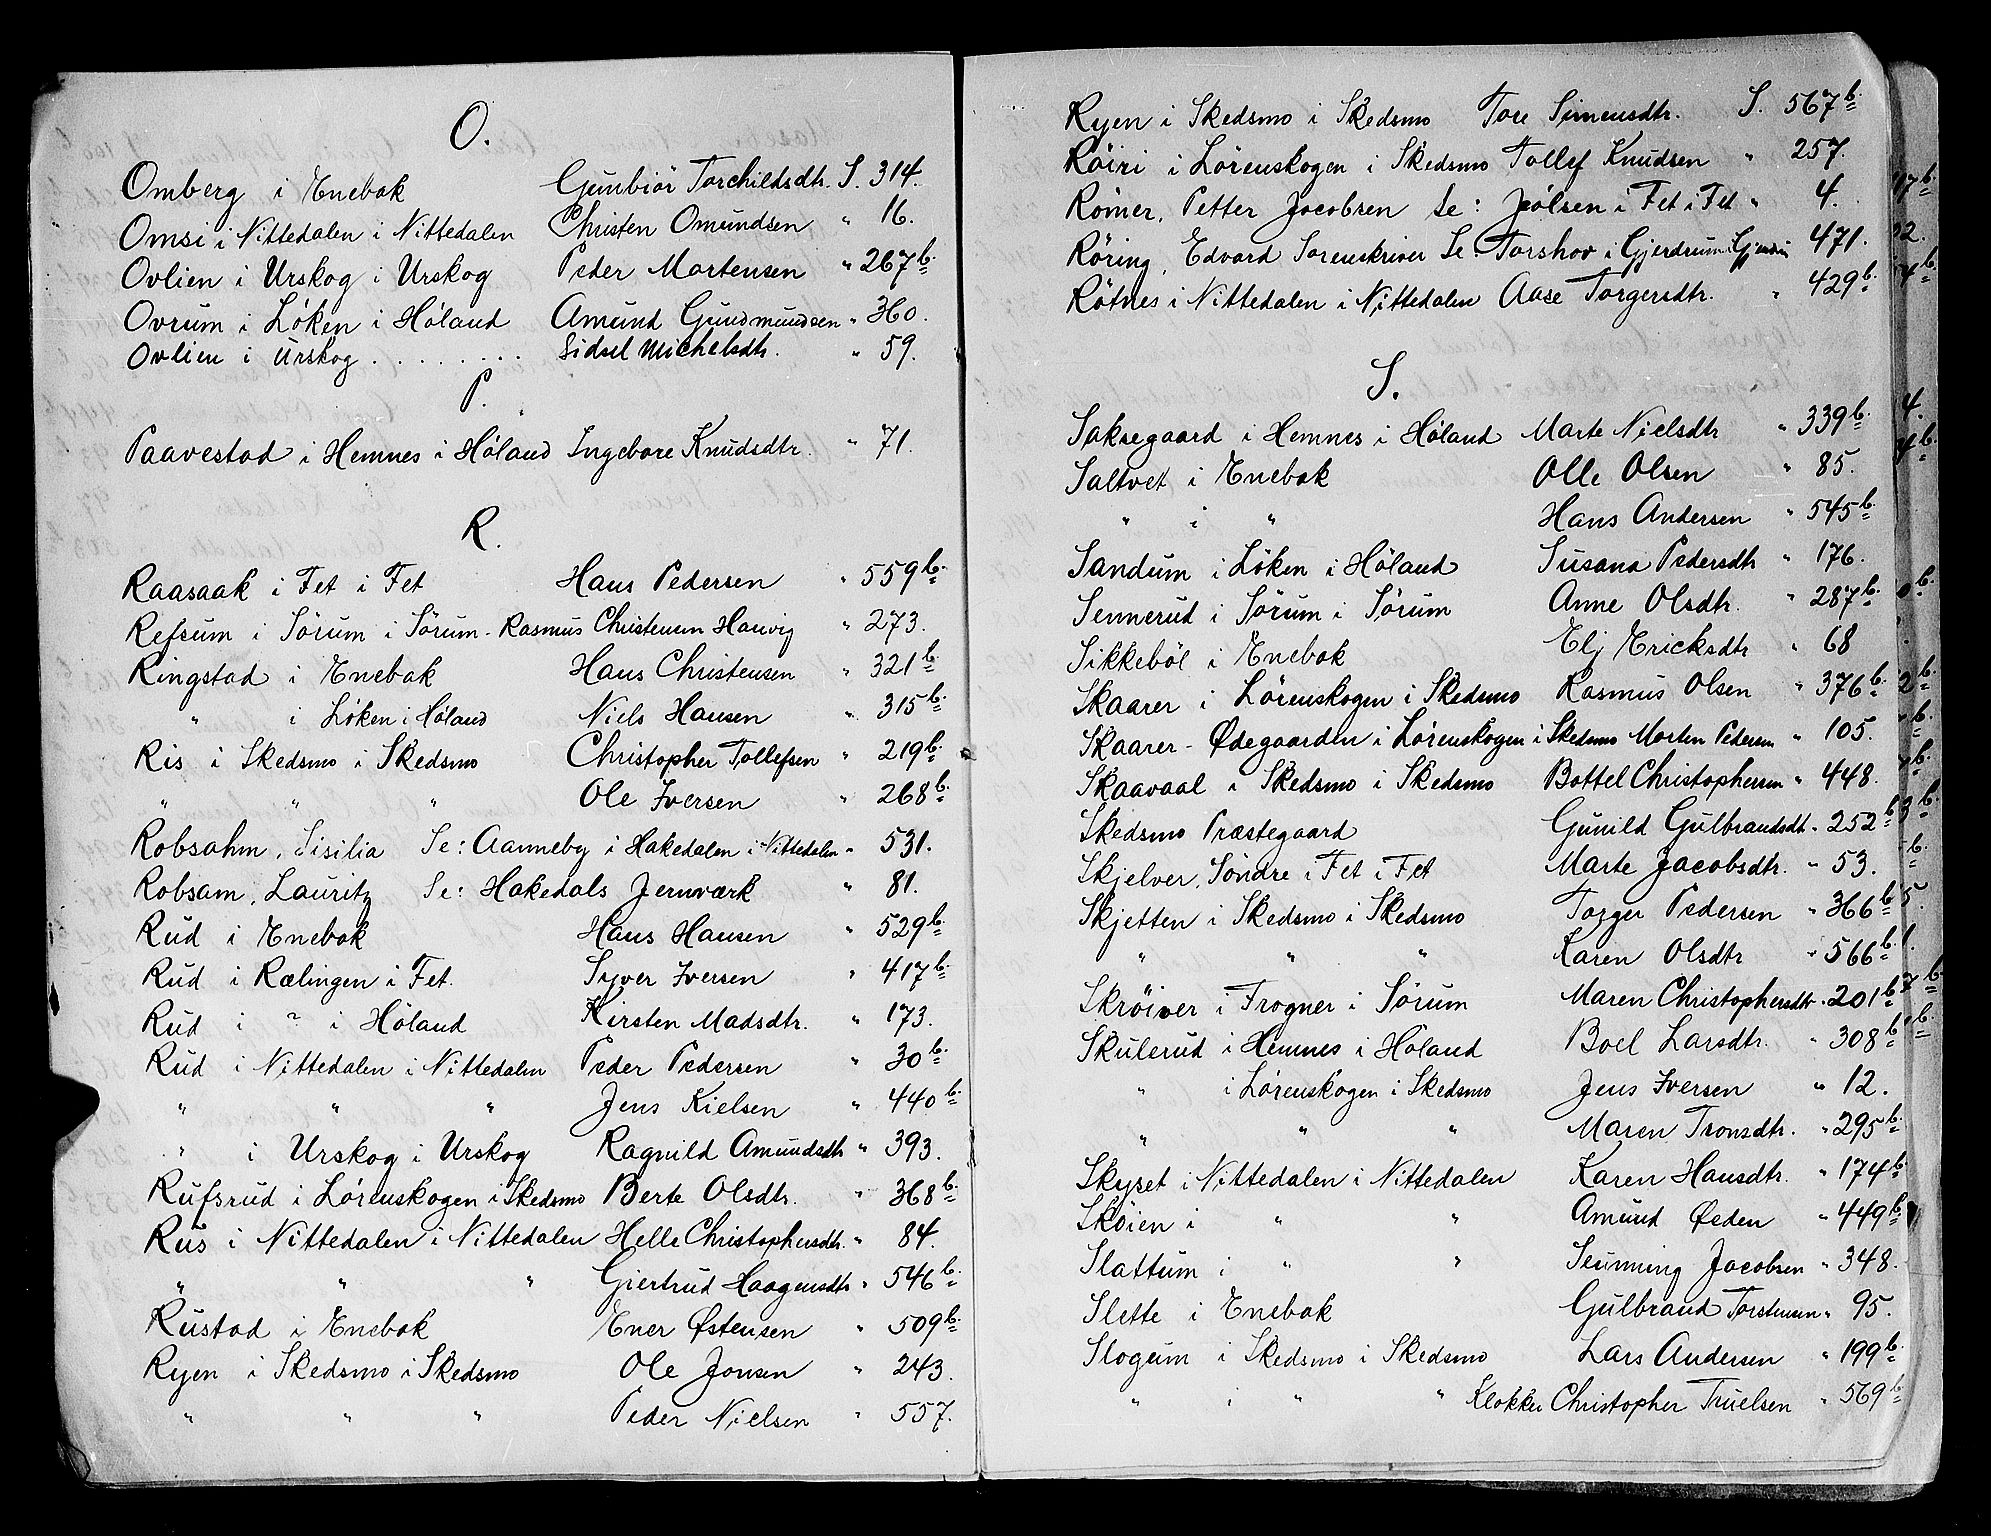 O.
Omberg i Enebak Gunbiör Torchildsdtr. S. 314.
Omsi i Nittedalen i Nittedalen Christen Omundsen " 16.
Ovlien i Urskog i Urskog Peder Mortensen " 267 b.
Ovrum i Löken i Höland Amund Gundmundsen " 360.
Ovlien i Urskog . . . . . . . . Sidsel Michelsdtr. " 59.
P.
Paavestad i Hemnes i Höland Ingebore Knudsdtr. " 71.
R.
Raasaak i Fet i Fet Hans Pedersen " 559 b.
Refsum i Sörum i Sörum - Rasmus Christensen Hauvig " 273.
Ringstad i Enebak Hans Christensen " 321 b.
" i Löken i Höland Niels Hansen " 315 b.
Ris i Skedsmo i Skedsmo Christopher Tollefsen " 219 b.
" " " Ole Iversen " 268 b.
Robsahm, Sisilia Se: Aanneby i Hakedalen i Nittedalen " 531.
Robsam, Lauritz Se: Hakedals Jernværk " 81.
Rud i Enebak Hans Hansen " 529 b.
Rud i Rælingen i Fet. Syver Iversen " 417 b.
Rud i ? i Höland Kirsten Madsdtr. " 173.
Rud i Nittedalen i Nittedalen Peder Pedersen " 30 b.
" " " Jens Kielsen " 440 b.
" i Urskog i Urskog Ragnild Amundsdtr " 393.
Rufsrud i Lörenskogen i Skedsmo Berte Olsdtr. " 368 b.
Rus i Nittedalen i Nittedalen Helle Christophersdtr. " 84.
" " " Giertrud Haagensdtr " 546 b.
Rustad i Enebak Ener Østensen " 509 b.
Ryen i Skedsmo i Skedsmo Ole Jonsen " 243.
" " " Peder Nielsen " 557.
Ryen i Skedsmo i Skedsmo Tore Simensdtr. S. 567 b.
Röiri i Lörenskogen i Skedsmo Tollef Knudsen " 257.
Römer, Petter Jacobsen Se: Jölsen i Fet i Fet " 4.
Röring, Edvard Sorenskriver Se: Torshov i Gjerdrum i Gjerdrum 471.
Rötnes i Nittedalen i Nittedalen Aase Torgersdtr. " 429 b.
S.
Saksegaard i Hemnes i Höland Marte Nielsdtr " 339 b.
Saltvet i Enebak Olle Olsen " 85.
" i " Hans Andersen " 545 b.
Sandum i Löken i Höland Susana Pedersdtr " 176.
Sennerud i Sörum i Sörum Anne Olsdtr. " 287 b.
Sikkeböl i Enebak Elj Ericksdtr " 68
Skaarer i Lörenskogen i Skedsmo Rasmus Olsen " 376 b.
Skaarer - Ødegaarden i Lörenskogen i Skedsmo Morten Pedersen " 105.
Skaavaal i Skedsmo i Skedsmo Bottel Christophersen " 448.
Skedsmo Præstegaard Gunild Gulbrandsdtr. " 252 b.
Skjelver, Söndre i Fet i Fet Marte Jacobsdtr. " 53.
Skjetten i Skedsmo i Skedsmo Torger Pedersen " 366 b.
" " " Karen Olsdtr " 566 b.
Skröiver i Frogner i Sörum Maren Christophersdtr " 201 b.
Skulerud i Hemnes i Höland Boel Larsdtr. " 308 b.
" i Lörenskogen i Skedsmo Jens Iversen " 12.
" " " Maren Tronsdtr. " 295 b.
Skyset i Nittedalen i Nittedalen Karen Hansdtr. " 174 b.
Sköien i " " Amund Øeden " 449 b.
Slattum i " " Seunning Jacobsen " 348.
Slette i Enebak Gulbrand Torstensen " 95.
Slogum i Skedsmo i Skedsmo Lars Andersen " 199 b.
" i " " Klokker Christopher Truelsen " 569 b.